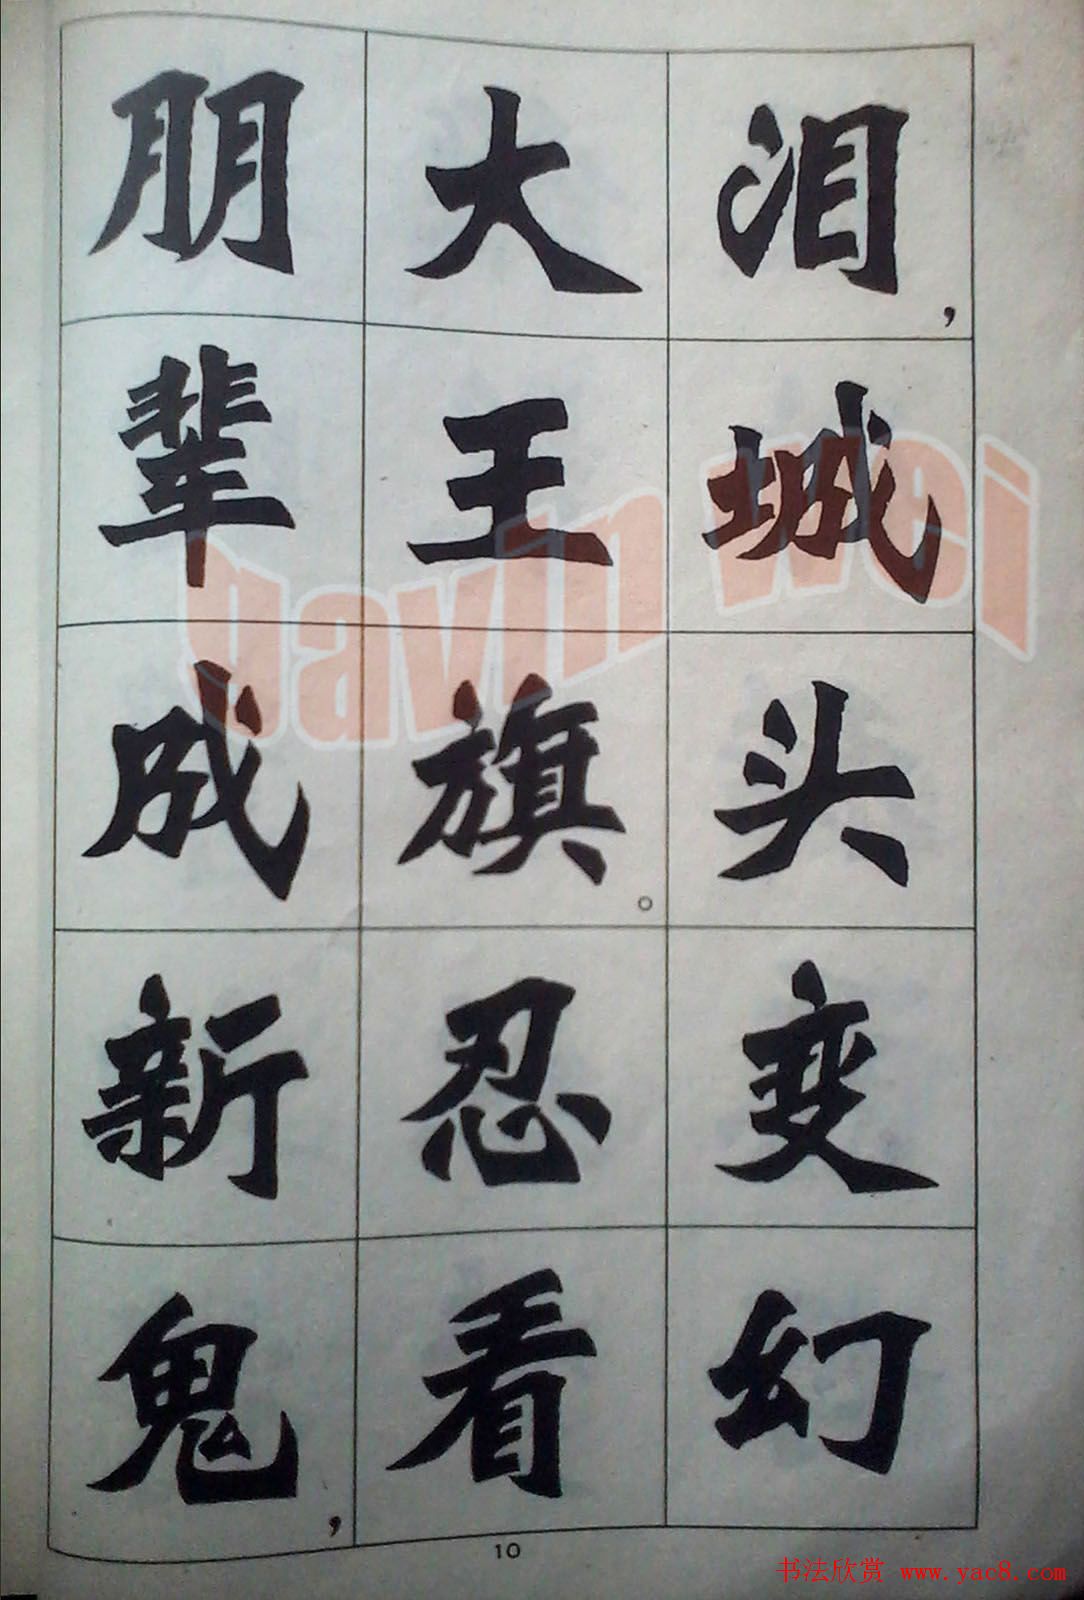 泪，城头变幻
大王旗。忍看
朋辈成新鬼，
gavin wei
10
书法欣赏 www.yac8.com